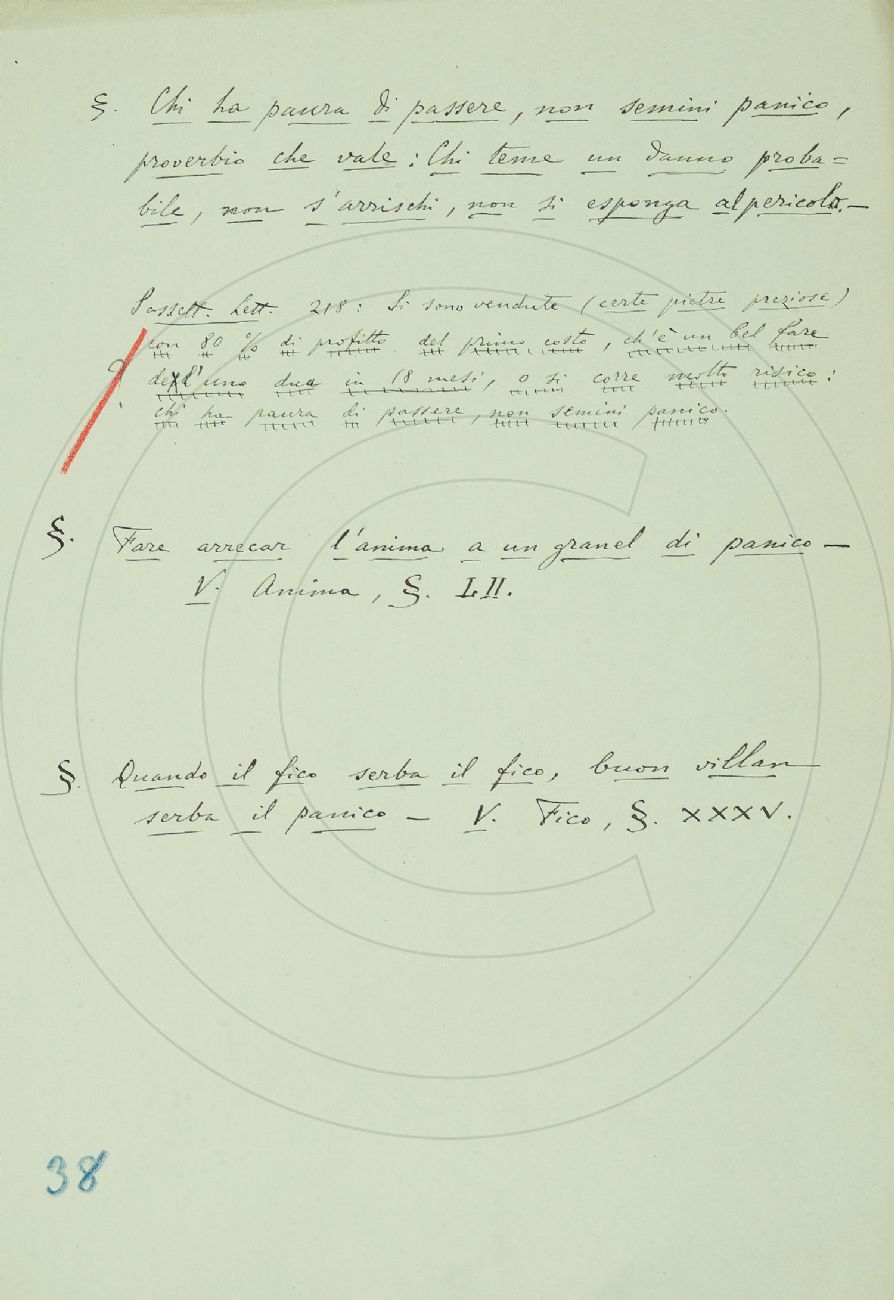 §. Chi ha paura di passere, non semini panico,
proverbio che vale: Chi teme un danno proba=
bile, non s'arrischi, non si esponga al pericolo.—
Sassett. Lett. 218: Si sono vendute (certe pietre preziose)
con 80 % di profitto del primo costo, ch'è un bel fare
dell'uno due in 18 mesi, o si corre molto risico:
?
chi ha paura di passere, non semini panico.
§. Fare arrecar l'anima a un granel di panico —
V. Anima, §. LII.
§. Quando il fico serba il fico, buon villan
serba il panico — V. Fico, §. XXXV.
38